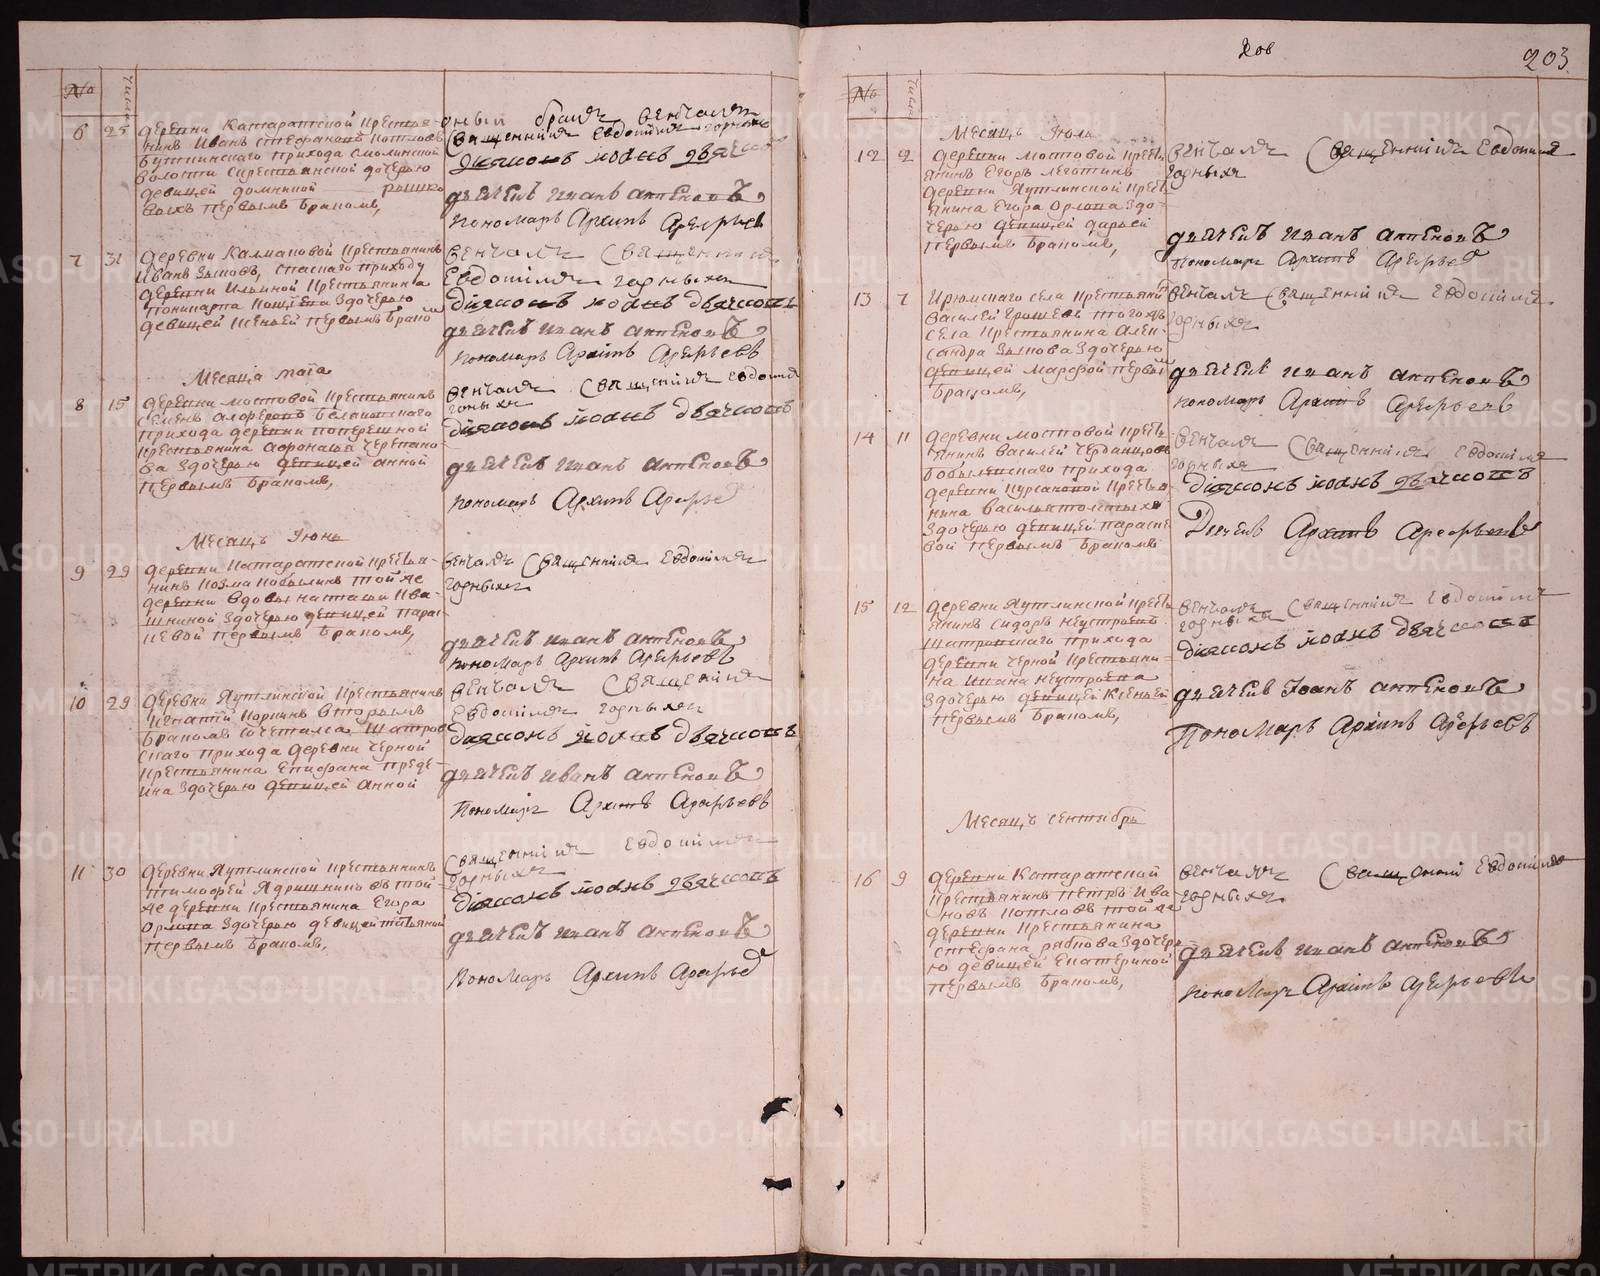 №
числа
6 25 деревни Катаратской крестья-
нинъ Иванъ Стефановъ Котловъ
Бутпинскаго прихода Смолинской
волости скрестьянской дочерью
девицей домникой
выхъ первымъ бракомъ,
браки венчалъ
священникъ Евдокимъ горныхъ
диаконъ иоанъ двяčконъ
дьячекъ иванъ антеновъ
пономарь Архипъ Арефьевъ
7 31 деревни Калмаковой крестьянинъ
Иванъ Зыковъ, спаскаго приходу
деревни Ильиной крестьянина
здочерью
девицей Ксеньей первымъ брако
венчалъ священникъ
Евдокимъ горныхъ
диаконъ иоанъ
дьячекъ иванъ антеновъ
пономарь Архипъ Арефьевъ
Месяца маия
8 15 деревни мостовой крестьянинъ
Семенъ Алферовъ Белаитскаго
прихода деревни поперешной
крестьянина Афонасья Черепано-
ва здочерью девицей анной
первымъ бракомъ,
венчалъ священникъ Евдоким
горныхъ
диаконъ иоанъ
дьячекъ иванъ антеновъ
пономарь Архипъ Арефье
Месяцъ Июнь
9 29 деревни Катаратской крестья-
нинъ Козма Кобылинъ той же
деревни вдовы наталии Ива-
шкиной здочерью девицей Пара-
кевой первымъ бракомъ,
венчалъ священникъ Евдокимъ
горныхъ
дьячекъ иванъ антеновъ
пономарь Архипъ Арефьевъ
10 29 деревни Яутлинской крестьянинъ
Игнатий Коркинъ вторымъ
бракомъ сочетался, Шатров
скаго прихода деревни Черной
крестьянина Епифана Преде-
ина здочерью девицей анной
венчалъ священникъ
Евдокимъ горныхъ
диаконъ иоанъ
дьячекъ Иванъ антеновъ
Пономарь Архипъ Арефьевъ
11 30 деревни Яутлинской крестьянинъ
тимофей Ядришниковъ той
же деревни крестьянина Егора
Орлова здочерью девицей татьяной
первымъ бракомъ,
священникъ Евдокимъ
горныхъ
диаконъ иоанъ
дьячекъ иванъ антеновъ
пономарь Архипъ Арефье
203
№
числа
Месяцъ Июль
12 2 деревни мостовой кресть
янинъ Егоръ Леготинъ
деревни Яутлинской крест
янина Егора Орлова здо-
черью девицей дарьей
первымъ бракомъ,
венчалъ священникъ Евдокимъ
горныхъ
дьячекъ иванъ антеновъ
пономарь Архипъ Арефье
13 7 Ирюмскаго села крестьянинъ
Василей Грошевъ тогожъ
села крестьянина Алек-
сандра Зыкова здочерью
девицей Марфой первы
бракомъ,
венчалъ священникъ Евдокимъ
горныхъ
дьячекъ иванъ антеновъ
пономарь Архипъ Арефьевъ
14 11 деревни мостовой кресть
янинъ Василей Чердынцовъ
Бобылевскаго прихода
деревни Курсаковой крестья-
нина Василья толстыхъ
здочерью девицей параске
вой первымъ бракомъ
венчалъ священникъ Евдокимъ
горныхъ
диаконъ иоанъ
Дьячекъ Архипъ Арефьевъ
15 12 деревни Яутлинской кресть
янинъ Сидоръ Неустроевъ
Шатровскаго прихода
деревни Черной крестьяни-
на Ивана Неустроева
здочерью девицей Ксеньей
первымъ бракомъ,
венчалъ священникъ Евдокимъ
горныхъ
диаконъ иоанъ
дьячекъ Иоанъ антеновъ
Пономарь Архипъ Арефьевъ
Месяцъ сентябрь
16 9 деревни Катаратской
крестьянинъ петръ Ива
новъ Котловъ той же
деревни крестьянина
стефана рябкова здочерь
ю девицей Екатериной
первымъ бракомъ,
венчалъ священникъ Евдокимъ
горныхъ
дьячекъ иванъ антеновъ
пономарь Архипъ Арефьевъ
METRIKI.GASO-URAL.RU